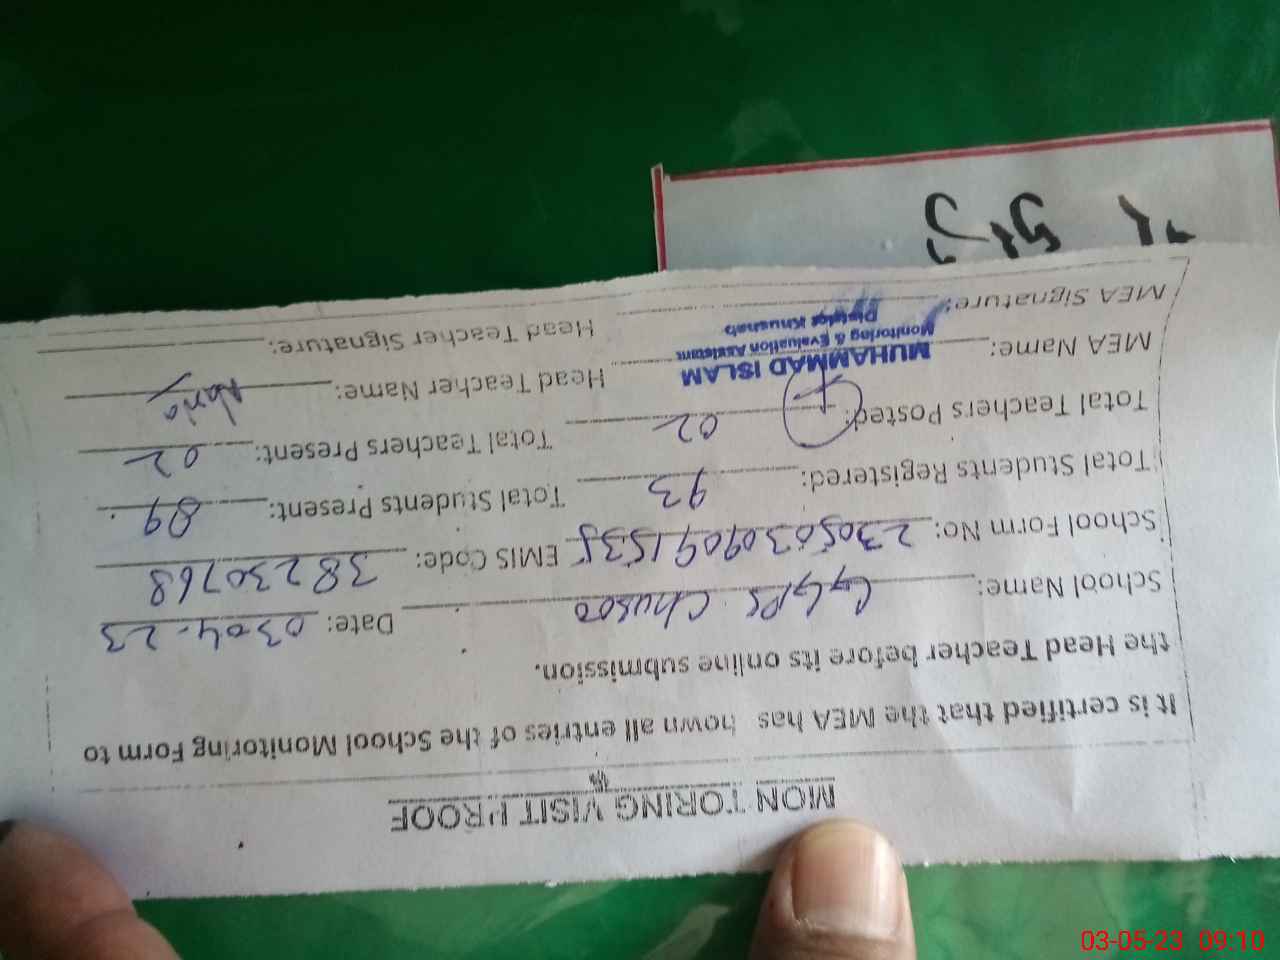 MONITORING VISIT PROOF
It is certified that the MEA has shown all entries of the School Monitoring Form to
the Head Teacher before its online submission.
School Name: GGPS Chusoo Date: 0304-23
School Form No: 23050309091535 EMIS Code: 38230768
Total Students Registered: 93 Total Students Present: 89
Total Teachers Posted: 02 Total Teachers Present: 02
MEA Name: MUHAMMAD ISLAM Head Teacher Name: Nazia
Monitoring & Evaluation Assistant
District Khushab
MEA Signature: Head Teacher Signature:
03-05-23 09:10